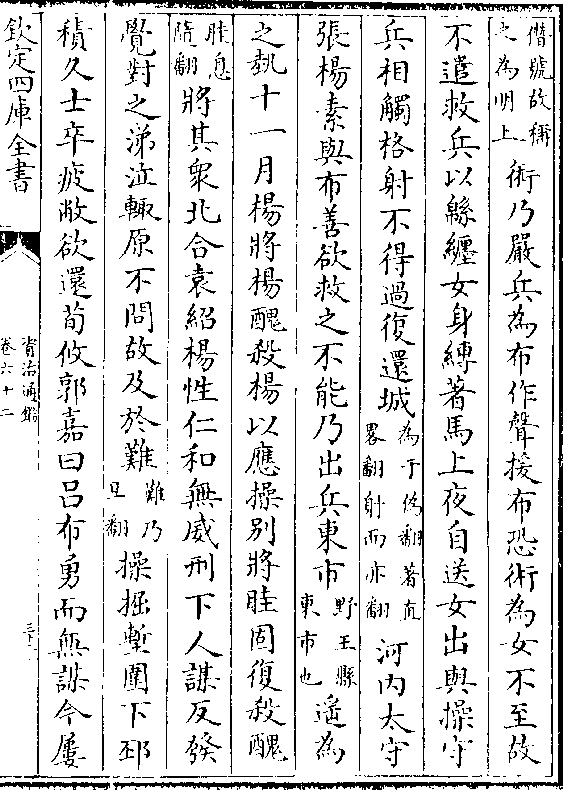 僭號故稱
之為明上
術乃嚴兵為布作聲援布恐術為女不至故
不遣救兵以緜纏女身縛著馬上夜自送女出與操守
兵相觸格射不得過復還城
為于偽翻著直
畧翻射而亦翻
河内太守
張楊素與布善欲救之不能乃出兵東市
野王縣
東市也
遙為
之埶十一月楊將楊醜殺楊以應操别將眭固復殺醜
眭息
隨翻
將其衆北合袁紹楊性仁和無威刑下人謀反發
覺對之涕泣輙原不問故及於難
難乃
旦翻
操掘塹圍下邳
積久士卒疲敝欲還荀攸郭嘉曰吕布勇而無謀今屢
欽定四庫全書
資治通鑑
卷六十二